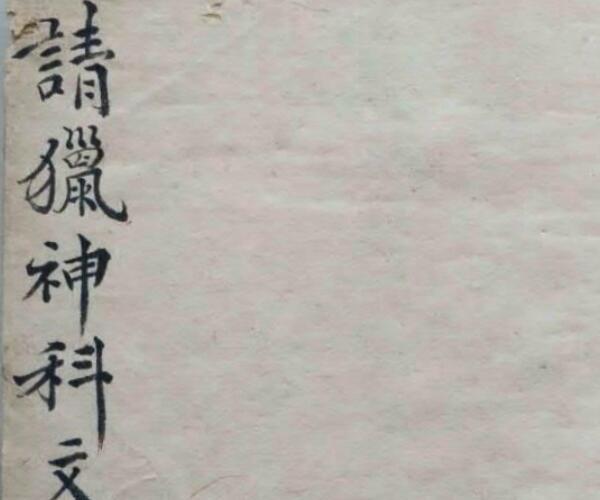 請獵神科文